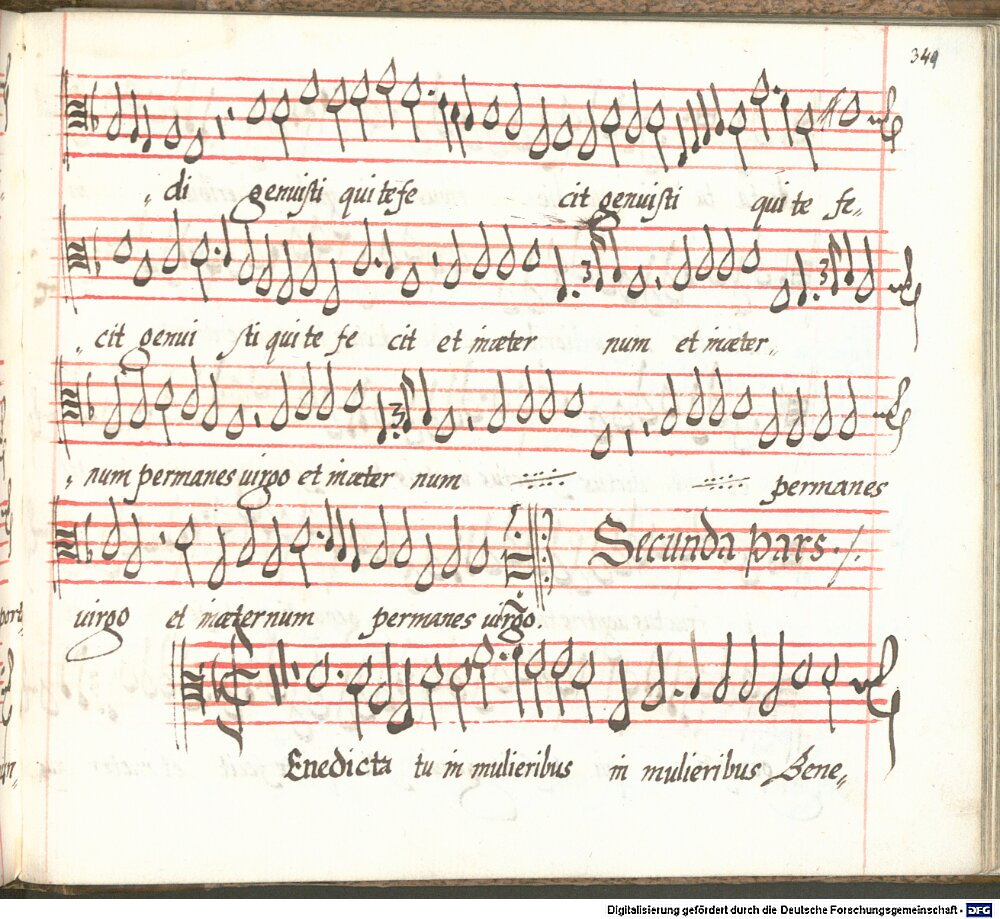 349
„ di genuisti qui te fe cit genuisti qui te fe„
„ cit genui sti qui te fe cit et inæter num et inæter„
„ num permanes uirgo et inæter num permanes
Secunda pars ./.
uirgo et inæternum permanes uirgo.
Enedicta tu in mulieribus in mulieribus Bene„
Digitalisierung gefördert durch die Deutsche Forschungsgemeinschaft - DFG